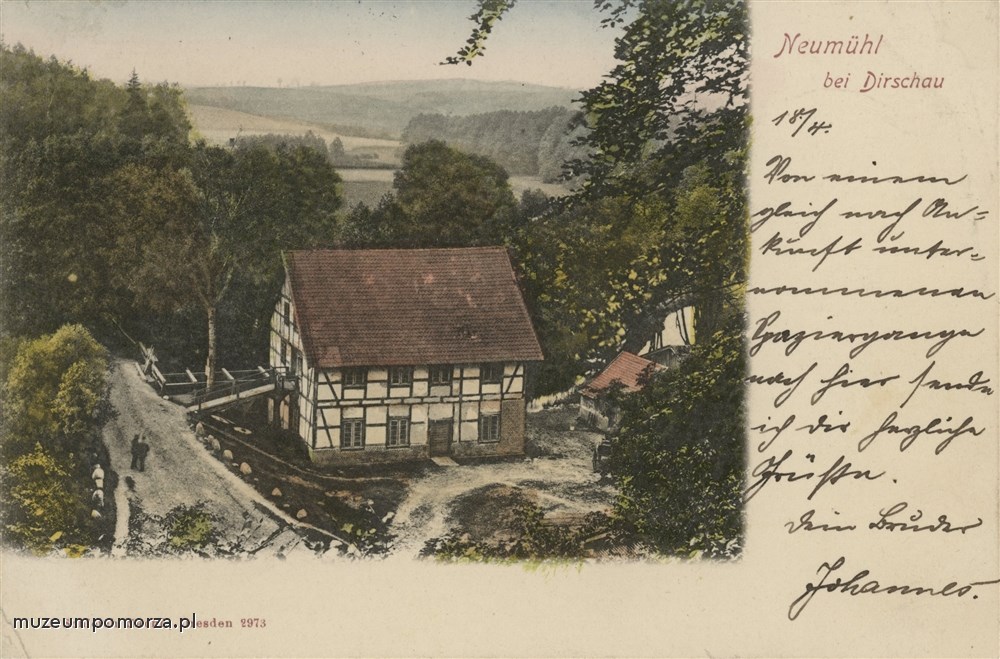 Neumühl
bei Dirschau
18/4.
Von einem
gleich nach An=
kunft unter=
nommenen
Spaziergange
nach hier sende
ich dir herzliche
Grüße.
Dein Bruder
Johannes.
muzeumpomorza.pl
esden 2973